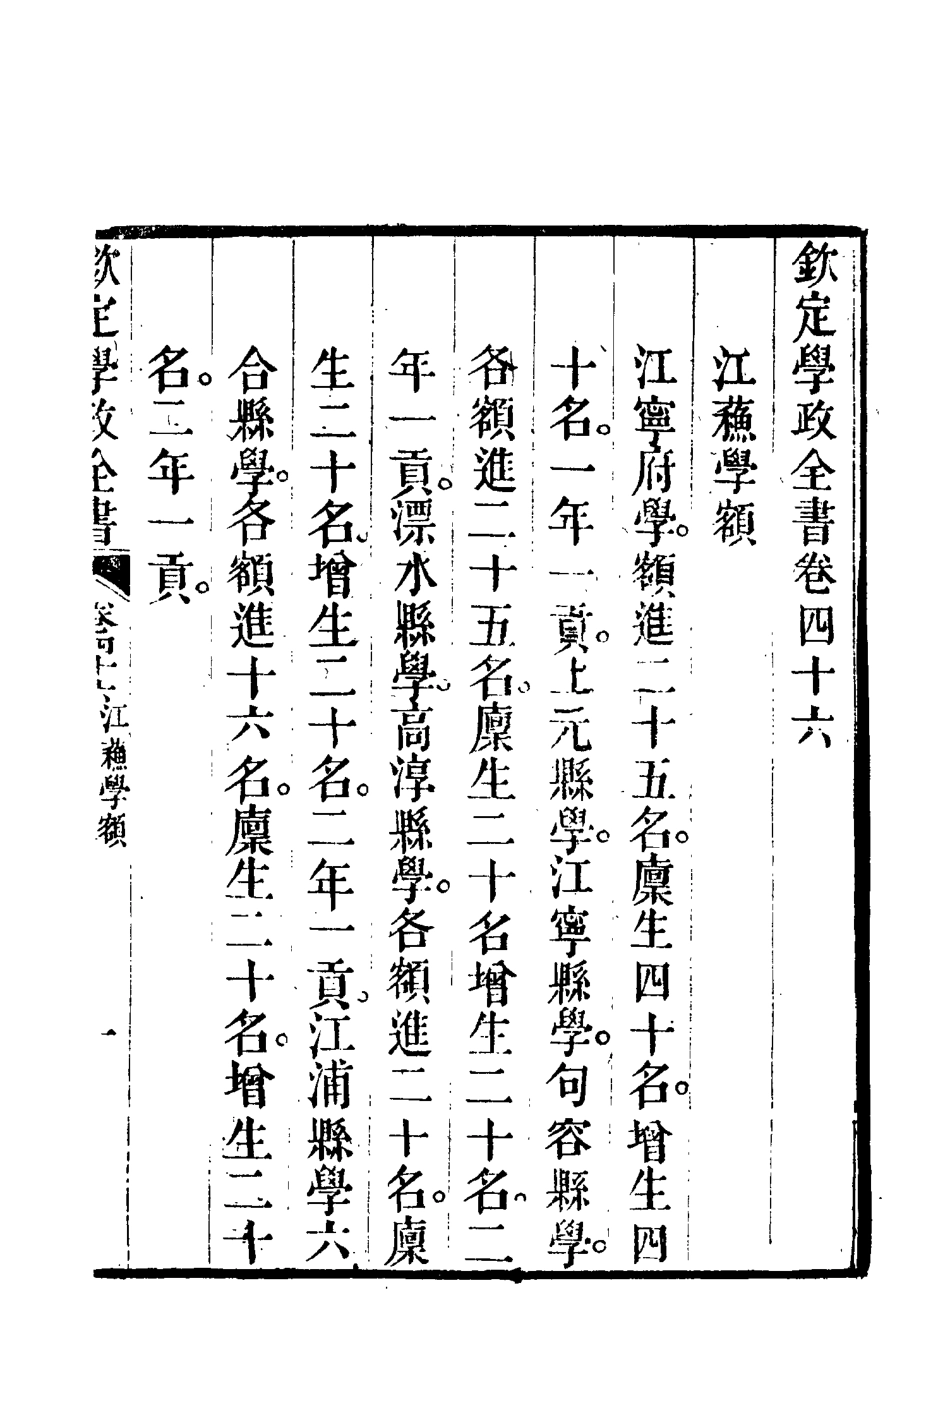 欽定學政全書卷四十六
江蘓學額
江寧府學。額進二十五名。廩生四十名。增生四
十名。一年一貢。上元縣學。江寧縣學。句容縣學。
各額進二十五名。廩生二十名增生二十名。二
年一貢。溧水縣學。高淳縣學。各額進二十名。廩
生二十名。增生二十名。二年一貢。江浦縣學六
合縣學。各額進十六名。廩生二十名。增生二十
名。二年一貢。
欽定學政全書
江蘓學額
一